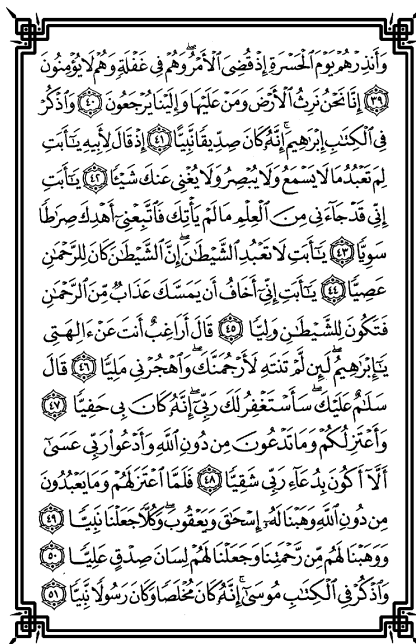 وَأَنذِرْهُمْ يَوْمَ ٱلْحَسْرَةِ إِذْ قُضِىَ ٱلْأَمْرُ وَهُمْ فِى غَفْلَةٍ وَهُمْ لَا يُؤْمِنُونَ
﴿٣٩﴾ إِنَّا نَحْنُ نَرِثُ ٱلْأَرْضَ وَمَنْ عَلَيْهَا وَإِلَيْنَا يُرْجَعُونَ ﴿٤٠﴾ وَٱذْكُرْ
فِى ٱلْكِتَٰبِ إِبْرَٰهِيمَ ۚ إِنَّهُۥ كَانَ صِدِّيقًا نَّبِيًّا ﴿٤١﴾ إِذْ قَالَ لِأَبِيهِ يَٰٓأَبَتِ
لِمَ تَعْبُدُ مَا لَا يَسْمَعُ وَلَا يُبْصِرُ وَلَا يُغْنِى عَنكَ شَيْـًٔا ﴿٤٢﴾ يَٰٓأَبَتِ
إِنِّى قَدْ جَآءَنِى مِنَ ٱلْعِلْمِ مَا لَمْ يَأْتِكَ فَٱتَّبِعْنِىٓ أَهْدِكَ صِرَٰطًا
سَوِيًّا ﴿٤٣﴾ يَٰٓأَبَتِ لَا تَعْبُدِ ٱلشَّيْطَٰنَ ۖ إِنَّ ٱلشَّيْطَٰنَ كَانَ لِلرَّحْمَٰنِ
عَصِيًّا ﴿٤٤﴾ يَٰٓأَبَتِ إِنِّىٓ أَخَافُ أَن يَمَسَّكَ عَذَابٌ مِّنَ ٱلرَّحْمَٰنِ
فَتَكُونَ لِلشَّيْطَٰنِ وَلِيًّا ﴿٤٥﴾ قَالَ أَرَاغِبٌ أَنتَ عَنْ ءَالِهَتِى
يَٰٓإِبْرَٰهِيمُ ۖ لَئِن لَّمْ تَنتَهِ لَأَرْجُمَنَّكَ ۖ وَٱهْجُرْنِى مَلِيًّا ﴿٤٦﴾ قَالَ
سَلَٰمٌ عَلَيْكَ ۖ سَأَسْتَغْفِرُ لَكَ رَبِّىٓ ۖ إِنَّهُۥ كَانَ بِى حَفِيًّا ﴿٤٧﴾
وَأَعْتَزِلُكُمْ وَمَا تَدْعُونَ مِن دُونِ ٱللَّهِ وَأَدْعُوا۟ رَبِّى عَسَىٰٓ
أَلَّآ أَكُونَ بِدُعَآءِ رَبِّى شَقِيًّا ﴿٤٨﴾ فَلَمَّا ٱعْتَزَلَهُمْ وَمَا يَعْبُدُونَ
مِن دُونِ ٱللَّهِ وَهَبْنَا لَهُۥٓ إِسْحَٰقَ وَيَعْقُوبَ ۖ وَكُلًّا جَعَلْنَا نَبِيًّا ﴿٤٩﴾
وَوَهَبْنَا لَهُم مِّن رَّحْمَتِنَا وَجَعَلْنَا لَهُمْ لِسَانَ صِدْقٍ عَلِيًّا ﴿٥٠﴾
وَٱذْكُرْ فِى ٱلْكِتَٰبِ مُوسَىٰٓ ۚ إِنَّهُۥ كَانَ مُخْلَصًا وَكَانَ رَسُولًا نَّبِيًّا ﴿٥١﴾